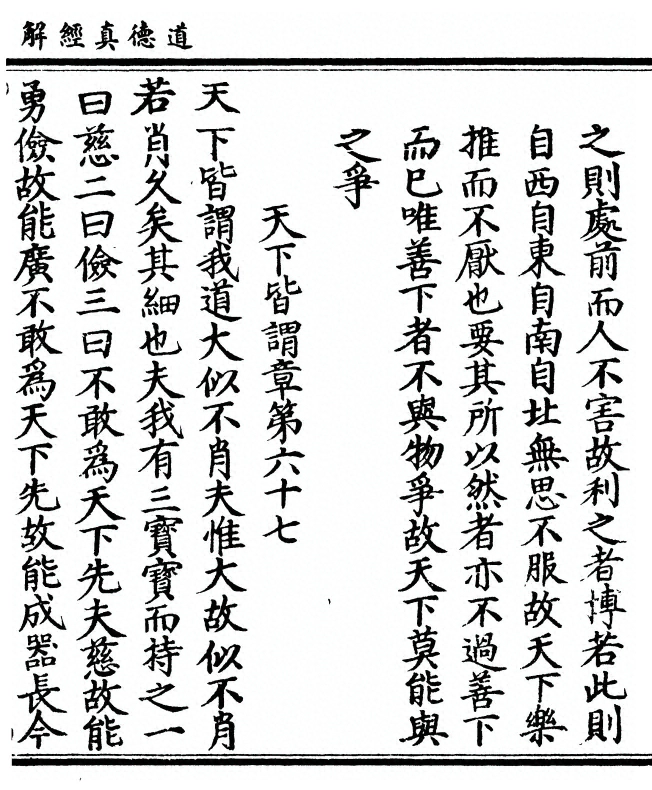 道德真經解
之則處前而人不害故利之者博若此則
自西自東自南自北無思不服故天下樂
推而不厭也要其所以然者亦不過善下
而已唯善下者不與物爭故天下莫能與
之爭
天下皆謂章第六十七
天下皆謂我道大似不肖夫惟大故似不肖
若肖久矣其細也夫我有三寶寶而持之一
曰慈二曰儉三曰不敢為天下先夫慈故能
勇儉故能廣不敢為天下先故能成器長今